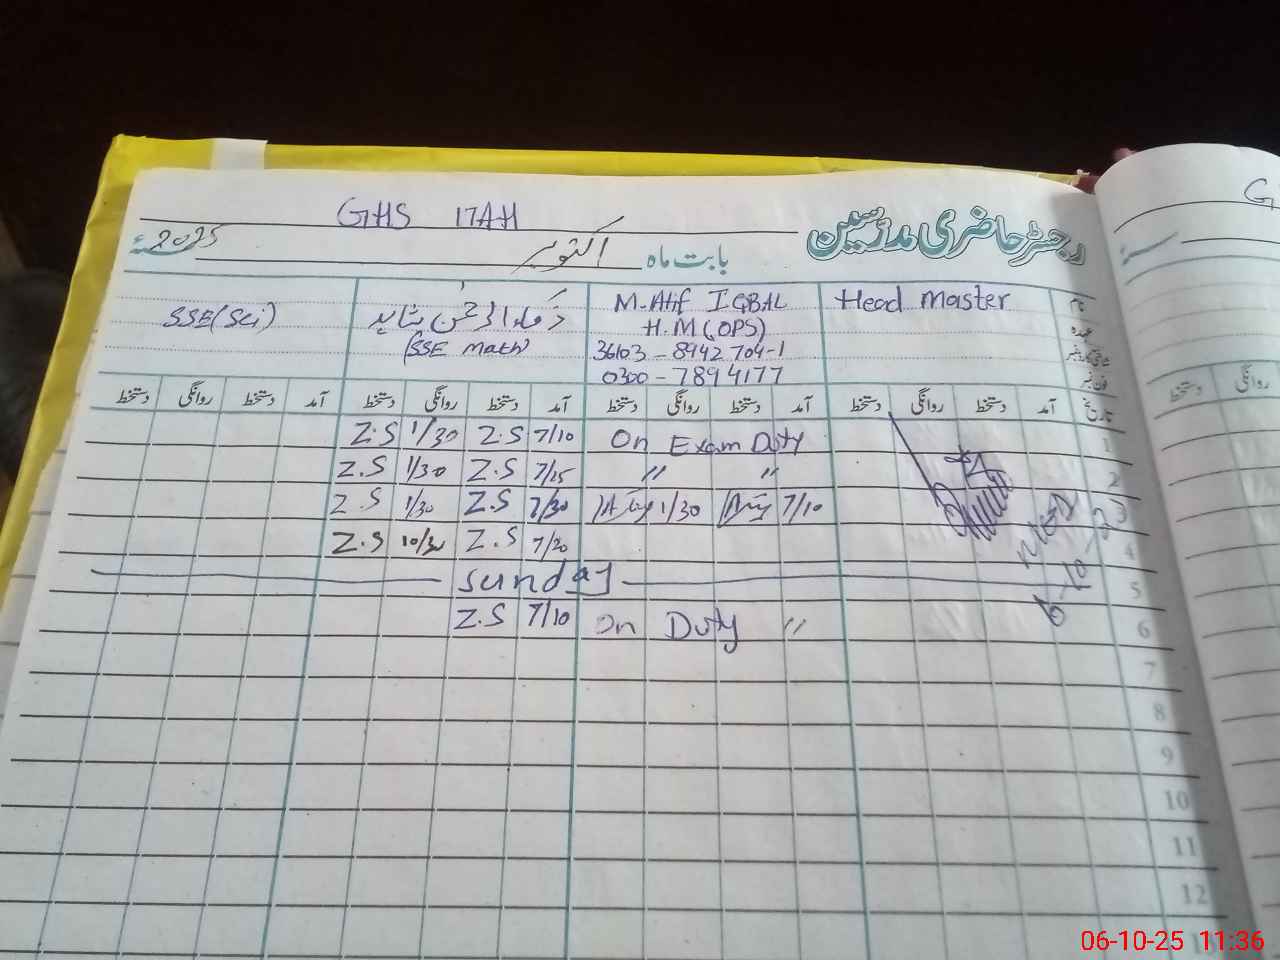 GHS 17AH
رجسٹر حاضری مدرسین
بابت ماہ اکتوبر 2025ء
Head Master
M. Atif IQBAL
H.M (OPS)
36103-8942704-1
0300-7894177
(SSE Math)
SSE(Sci)
نام
عہدہ
شناختی کارڈ نمبر
فون نمبر
تاریخ آمد دستخط روانگی دستخط آمد دستخط روانگی دستخط آمد دستخط روانگی دستخط آمد دستخط روانگی دستخط
1 On Exam Duty 7/10 Z.S 1/30 Z.S
2 〃 〃 7/25 Z.S 1/30 Z.S
3 7/10 1/30 7/30 Z.S 1/30 Z.S
4 7/20 Z.S 10/30 Z.S
5 Sunday
6 On Duty 〃 7/10 Z.S
7
8
9
10
11
12
روانگی دستخط
06-10-25 11:36